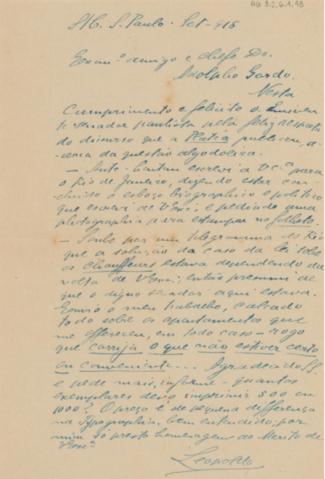 AG 3.2.6.1.18
S. Paulo - Set - 918
Exmo. amigo e chefe Dr.
Adolpho Gordo.
Nesta
Cumprimento e felicito o Eminen
te Senador paulista pela feliz resposta
do discurso que a Platéa publicou, a
cerca da questão algodoeira.
- Ante-hontem escrevi a V. Exa. para
o Rio de Janeiro, dizendo estar con
cluido o esboço biographico e politico
que escrevi de V. Exa. e pedindo uma
photographia para estampar no folheto.
- Soube por um telegramma do Rio
que a solução do caso da lei sobre
os Chauffeurs estava dependendo da
volta de V. Exa.; então presumi de
que o digno senador, aqui estava.
Envio o meu trabalho, calcado
todo sobre os apontamentos que
me offereceu, em todo caso - rogo
que corrija o que não estiver certo
ou conveniente... Agradecido
e pede mais, informe - quantos
exemplares devo imprimir 500 ou
1000? O preço é de pequena differença
na Typographia, bem entendido, por
mim só presto homenagem ao Merito de
V. Exa.
Leopoldo